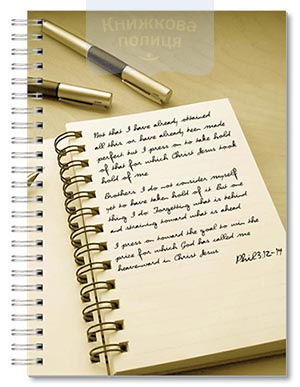 Книжкова
полиця
Not that I have already attained
all this or have already been made
perfect but I press on to take hold
of that for which Christ Jesus took
hold of me
Brothers I do not consider myself
yet to have taken hold of it but one
thing I do: Forgetting what is behind
and straining toward what is ahead
I press on toward the goal to win the
prize for which God has called me
heavenward in Christ Jesus
Phil 3:12-14